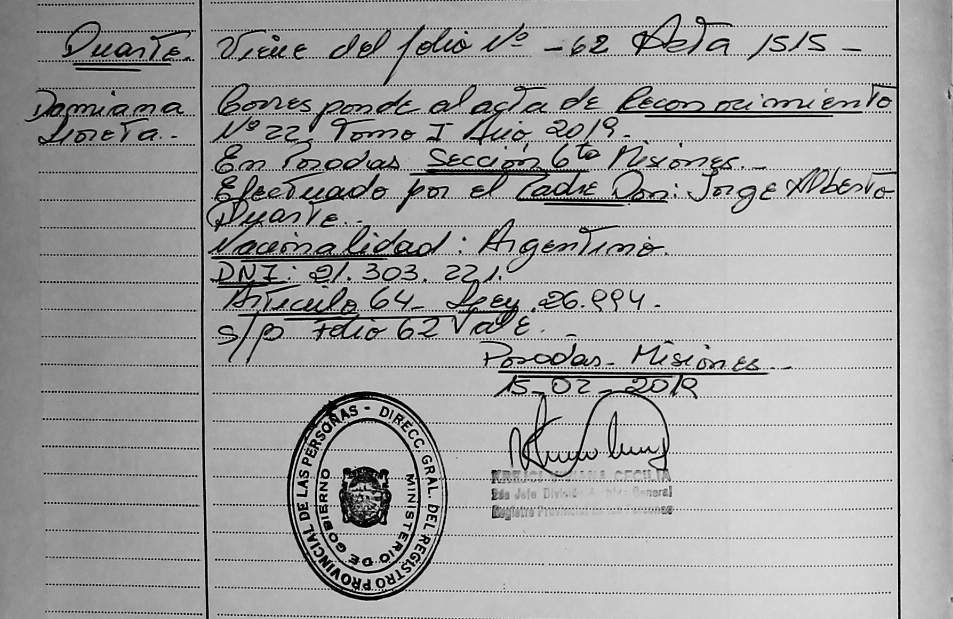 Duarte.
Damiana
Loreta.-
Viene del folio Nº -62 Acta 1515-
Corresponde al acta de Reconocimiento
Nº 22 Tomo I Año 2019.
En Posadas Sección 6ta Misiones.-
Efectuado por el Padre Don: Jorge Alberto
Duarte.-
Nacionalidad: Argentino.
DNI: 21.303.221.
Artículo 64- Ley 26.994.
s/p Folio 62 Vale.-
Posadas- Misiones-
15-02-2019
CECILIA
2da Jefe División General
Registro Provincial de las Personas
DIRECC. GRAL. DEL REGISTRO PROVINCIAL DE LAS PERSONAS -
MINISTERIO DE GOBIERNO